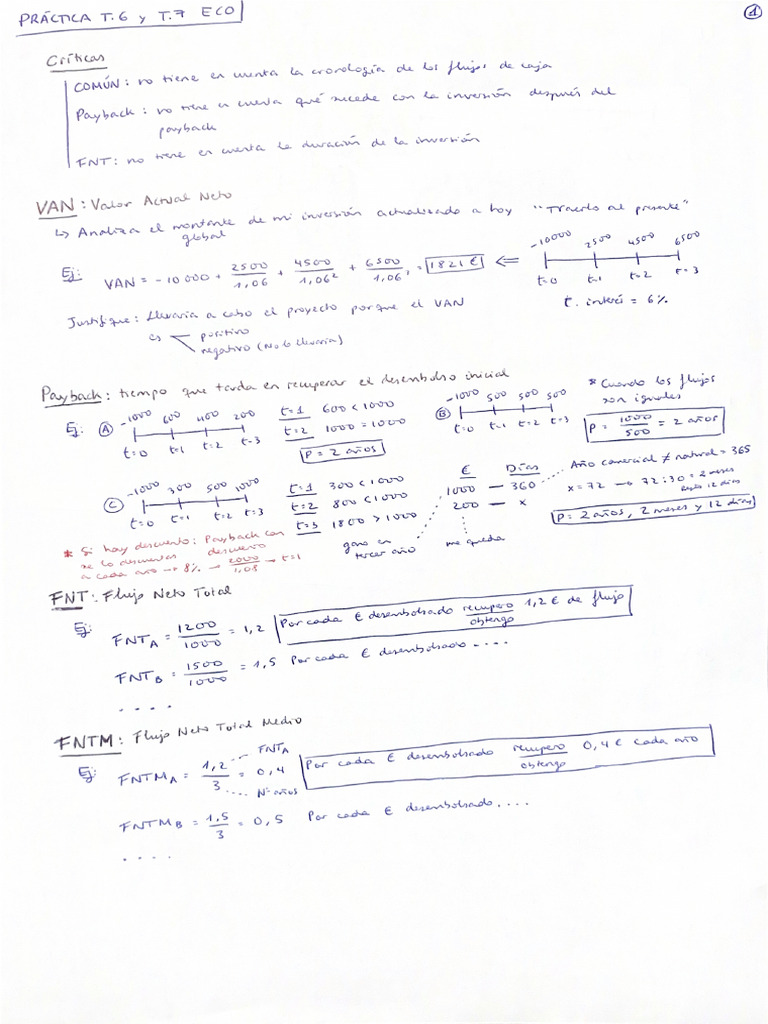 PRÁCTICA T.6 y T.7 ECO
1
Críticas
COMÚN: no tiene en cuenta la cronología de los flujos de caja
Payback: no tiene en cuenta qué sucede con la inversión después del
payback
FNT: no tiene en cuenta la duración de la inversión
VAN: Valor Actual Neto
↳ Analiza el montante de mi inversión actualizado a hoy "Traerlo al presente"
global
Ej: VAN = -10 000 + 2500/1,06 + 4500/1,06² + 6500/1,06, = 1821 € ⇐
-10000 2500 4500 6500
t=0 t=1 t=2 t=3
t. interés = 6%
Justifique: Llevaría a cabo el proyecto porque el VAN
es positivo
negativo (No lo llevaría)
Payback: tiempo que tarda en recuperar el desembolso inicial
Ej: A -1000 600 400 200
t=0 t=1 t=2 t=3
t=1 600 < 1000
t=2 1000 = 1000
P = 2 años
B -1000 500 500 500
t=0 t=1 t=2 t=3
* Cuando los flujos
son iguales
P = 1000/500 = 2 años
C -1000 300 500 1000
t=0 t=1 t=2 t=3
t=1 300 < 1000
t=2 800 < 1000
t=3 1800 > 1000
€ Días
1000 — 360
200 — x
gano en
tercer año
me queda
Año comercial ≠ natural = 365
x = 72 → 72:30 = 2 meses
12 días
P = 2 años, 2 meses y 12 días
* Si hay descuento: Payback con
descuento
se lo descuentas
a cada año → 8% → 2000/1,08 → t=1
FNT: Flujo Neto Total
Ej: FNTA = 1200/1000 = 1,2 Por cada € desembolsado recupero/obtengo 1,2 € de flujo
FNTB = 1500/1000 = 1,5 Por cada € desembolsado ....
....
FNTM: Flujo Neto Total Medio
Ej: FNTMA = 1,2/3 = 0,4 Por cada € desembolsado recupero/obtengo 0,4 € cada año
FNTA
Nº años
FNTMB = 1,5/3 = 0,5 Por cada € desembolsado....
....